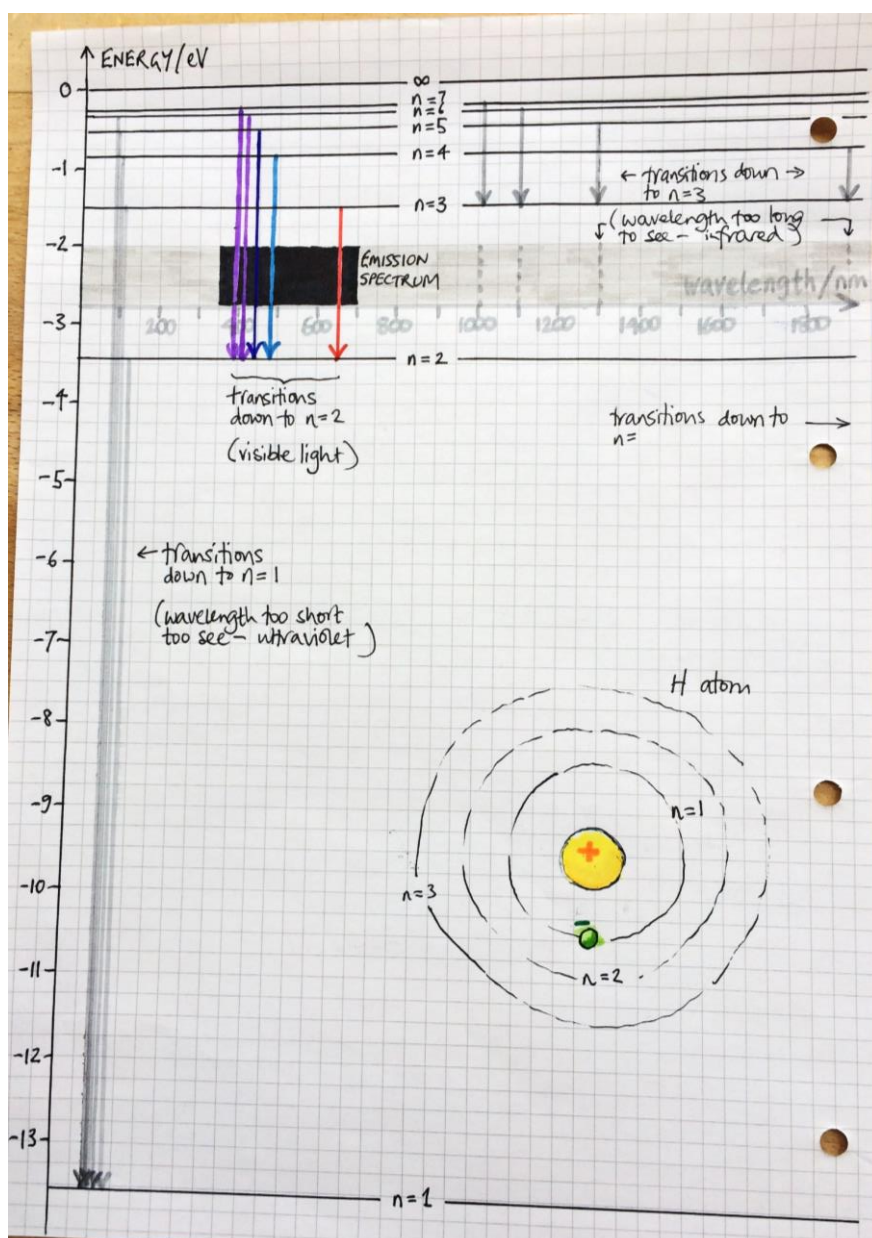 ENERGY/eV
∞
0
n=7
n=6
n=5
-1
n=4
← transitions down →
to n=3
n=3
(wavelength too long
to see - infrared)
-2
EMISSION
SPECTRUM
wavelength/nm
-3
200
400
600
800
1000
1200
1400
1600
1800
n=2
-4
transitions
down to n=2
(visible light)
transitions down to →
n=
-5
-6
← transitions
down to n=1
(wavelength too short
too see - ultraviolet)
-7
H atom
-8
-9
n=1
+
-10
n=3
-
n=2
-11
-12
-13
n=1